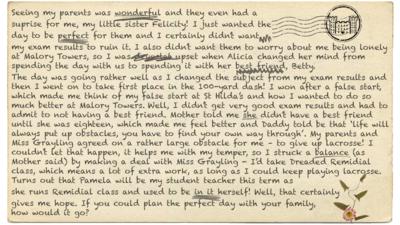 seeing my parents was wonderful and they even had a
suprise for me, my little sister Felicity! I just wanted the
day to be perfect for them and I certainly didnt want
my exam results to ruin it. I also didnt want them to worry about me being lonely
at Malory Towers, so I was upset when Alicia changed her mind from
spending the day with us to spending it with her best friend, Betty.
The day was going rather well as I changed the subject from my exam results and
then I went on to take first place in the 100-yard dash! I won after a false start,
which made me think of my false start at St Hilda's and how I wanted to do so
much better at Malory Towers. Well, I didn't get very good exam results and had to
admit to not having a best friend. Mother told me she didn't have a best friend
until she was eighteen, which made me feel better and Daddy told be that 'life will
always put up obstacles, you have to find your own way through'. My parents and
Miss Grayling agreed on a rather large obstacle for me - to give up lacrosse! I
couldn't let that happen, it helps me with my temper, so I struck a balance (as
Mother said) by making a deal with Miss Grayling - I'd take Dreaded Remidial
class, which means a lot of extra work, as long as I could keep playing lacrosse.
Turns out that Pamela will be my student teacher this term as
she runs Remidial class and used to be in it herself! Well, that certainly
gives me hope. If you could plan the perfect day with your family,
how would it go?